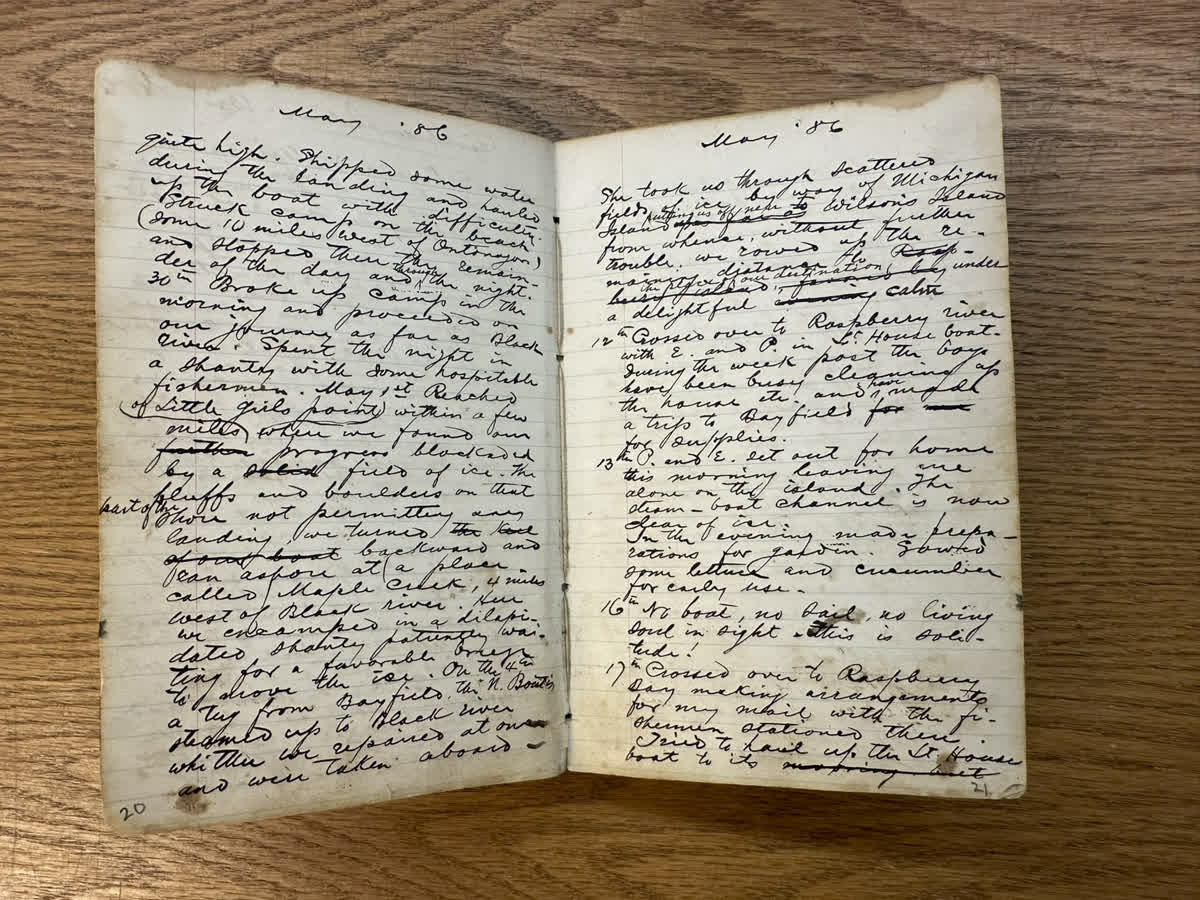 May '86
quite high. Shipped some water
during the landing and hauled
up the boat with difficulty
Struck camp on the beach
(some 10 miles west of Ontonagon)
and stopped there the remain-
der of the day and through the night.
30th Broke up camp in the
morning and proceeded on
our journey as far as Black
river. Spent the night in
a shanty with some hospitable
fishermen. May 1st Reached
(of Little girls point) within a few
miles where we found our
further progress blockaded
by a solid field of ice. The
bluffs and boulders on that
part of the shore not permitting any
landing we turned the keel
of our boat backward and
ran ashore at (a place
called) Maple Creek, 4 miles
west of Black river. Here
we encamped in a dilapi-
dated shanty patiently wai-
ting for a favorable breeze
to move the ice. On the 4th
a tug from Bayfield, the N. Boutin
steamed up to Black river
whither we repaired at once
and were taken aboard
20
May '86
She took us through scattered
fields of ice by way of Michigan
Island putting us off near to Wilsons Island
from whence, without further
trouble, we rowed up the re-
maining distance to
the place of our destination, under
a delightful calm
12th Crossed over to Raspberry river
with E. and P. in Lt. House boat.
During the week past the boys
have been busy cleaning up
the house etc. and have made
a trip to Bayfield for
for supplies.
13th P. and E. set out for home
this morning leaving me
alone on the island. The
steam-boat channel is now
clear of ice.
In the evening made prepa-
rations for garden. Sowed
some lettuce and cucumber
for early use.
16th No boat, no sail, no living
soul in sight - this is soli-
tude!
17th Crossed over to Raspberry
Bay making arrangements
for my mail with the fi-
shermen stationed there.
Tried to haul up the Lt. House
boat to its
21